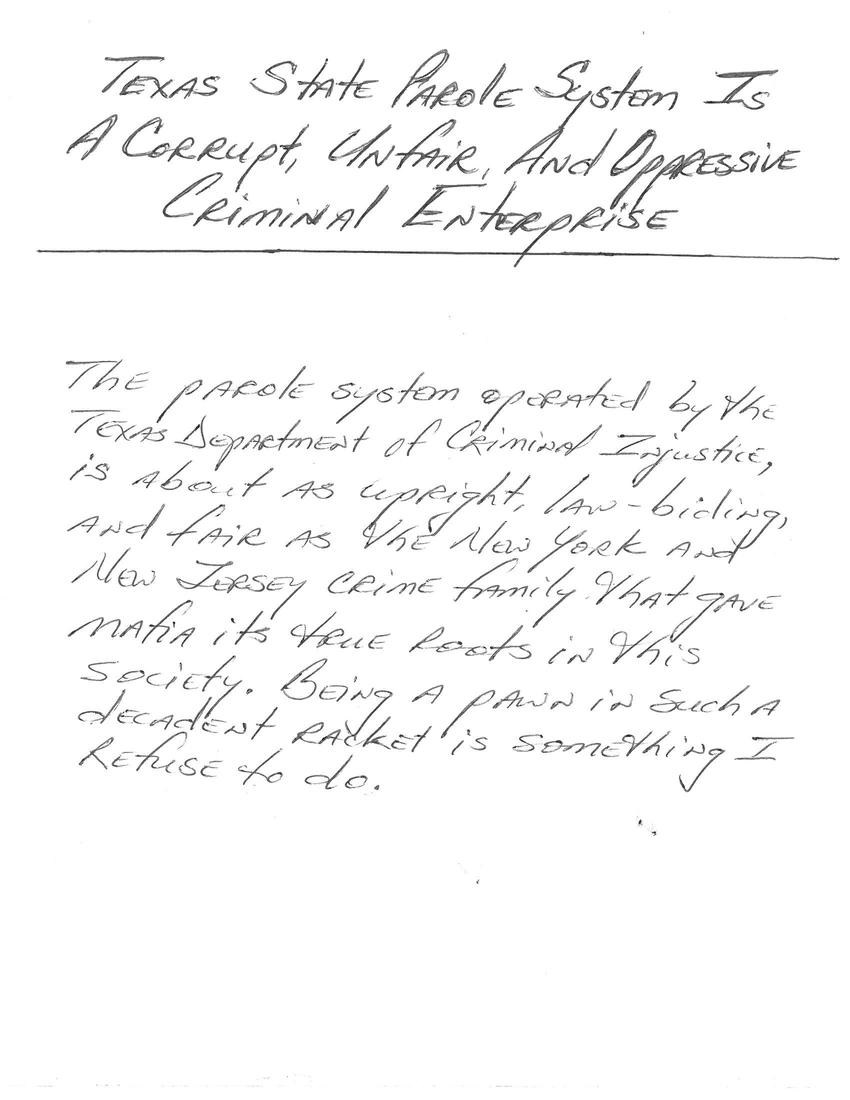 Texas State Parole System Is
A Corrupt, Unfair, And Oppressive
Criminal Enterprise
The parole system operated by the
Texas Department of Criminal Injustice,
is about as upright, law-biding,
and fair as the New York and
New Jersey crime family that gave
mafia its true roots in this
society. Being a pawn in such a
decadent racket is something I
refuse to do.